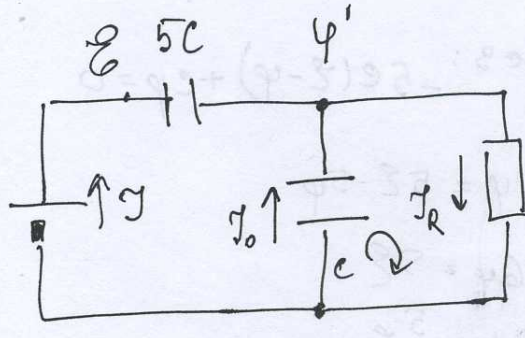 ℰ 5C φ'
ℐ
ℐ₀
ℐ_R
C